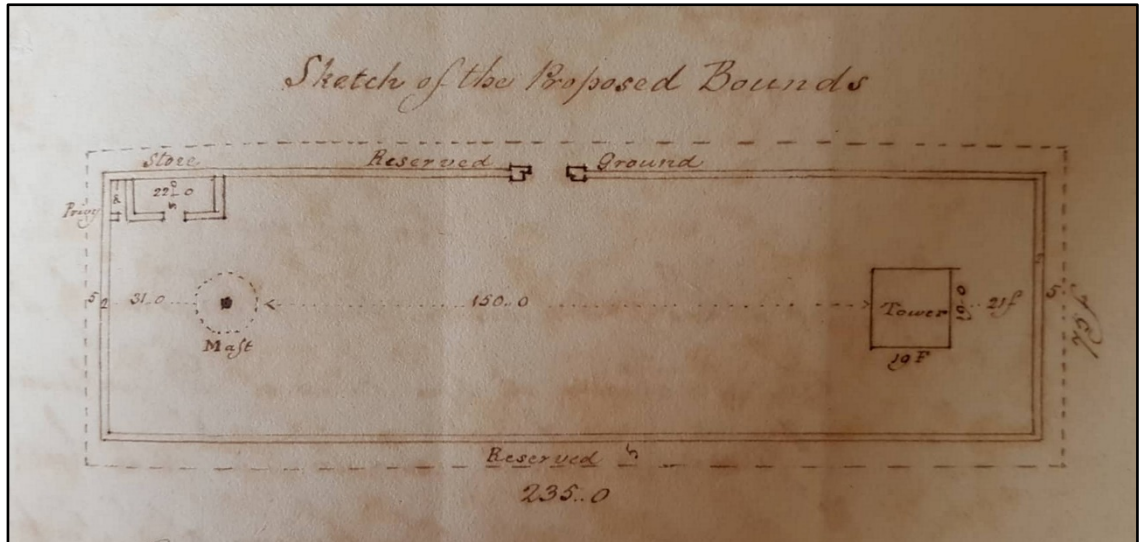 Sketch of the Proposed Bounds
Store
Reserved
Ground
22f..0
Privy
5
2
31..0
150..0
Tower
19..0
21f
5
Mast
19F
Reserved
5
235..0